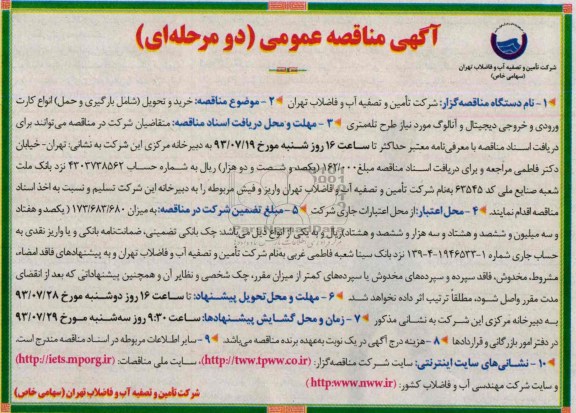 آگهی مناقصه عمومی (دو مرحله‌ای)
شرکت تأمین و تصفیه آب و فاضلاب تهران
(سهامی خاص)
۱- نام دستگاه مناقصه‌گزار: شرکت تأمین و تصفیه آب و فاضلاب تهران ۲- موضوع مناقصه: خرید و تحویل (شامل بارگیری و حمل) انواع کارت
ورودی و خروجی دیجیتال و آنالوگ مورد نیاز طرح تله‌متری ۳- مهلت و محل دریافت اسناد مناقصه: متقاضیان شرکت در مناقصه می‌توانند برای
دریافت اسناد مناقصه با معرفی‌نامه معتبر حداکثر تا ساعت ۱۶ روز شنبه مورخ ۹۳/۰۷/۱۹ به دبیرخانه مرکزی این شرکت به نشانی: تهران- خیابان
دکتر فاطمی مراجعه و برای دریافت اسناد مناقصه مبلغ ۱۶۲/۰۰۰ (یکصد و شصت و دو هزار) ریال به شماره حساب ۴۳۰۳۷۳۸۵۶۲ نزد بانک ملت
شعبه صنایع ملی کد ۶۳۵۴۵ به‌نام شرکت تأمین و تصفیه آب و فاضلاب تهران واریز و فیش مربوطه را به دبیرخانه این شرکت تسلیم و نسبت به اخذ اسناد
مناقصه اقدام نمایند. ۴- محل اعتبار: از محل اعتبارات جاری شرکت ۵- مبلغ تضمین شرکت در مناقصه: به میزان ۱۷۳/۶۸۳/۶۸۰ (یکصد و هفتاد
و سه میلیون و ششصد و هشتاد و سه هزار و ششصد و هشتاد) ریال و به یکی از انواع ذیل می‌باشد: چک بانکی تضمینی، ضمانت‌نامه بانکی و یا واریز نقدی به
حساب جاری شماره ۱-۱۹۴۶۵۳۳-۴-۱۳۹ نزد بانک سینا شعبه فاطمی غربی به‌نام شرکت تأمین و تصفیه آب و فاضلاب تهران و به پیشنهادهای فاقد امضاء،
مشروط، مخدوش، فاقد سپرده و سپرده‌های مخدوش یا سپرده‌های کمتر از میزان مقرر، چک شخصی و نظایر آن و همچنین پیشنهاداتی که بعد از انقضای
مدت مقرر واصل شود، مطلقاً ترتیب اثر داده نخواهد شد. ۶- مهلت و محل تحویل پیشنهاد: تا ساعت ۱۶ روز دوشنبه مورخ ۹۳/۰۷/۲۸
به دبیرخانه مرکزی این شرکت به نشانی مذکور ۷- زمان و محل گشایش پیشنهادها: ساعت ۹:۳۰ روز سه‌شنبه مورخ ۹۳/۰۷/۲۹
در دفتر امور بازرگانی و قراردادها ۸- هزینه درج آگهی در یک نوبت به‌عهده برنده مناقصه می‌باشد. ۹- سایر اطلاعات مربوطه در اسناد مناقصه مندرج است.
۱۰- نشانی‌های سایت اینترنتی: سایت شرکت مناقصه‌گزار: (http://tww.tpww.co.ir)، سایت ملی مناقصات: (http://iets.mporg.ir)
و سایت شرکت مهندسی آب و فاضلاب کشور: (http:www.nww.ir)
شرکت تأمین و تصفیه آب و فاضلاب تهران (سهامی خاص)